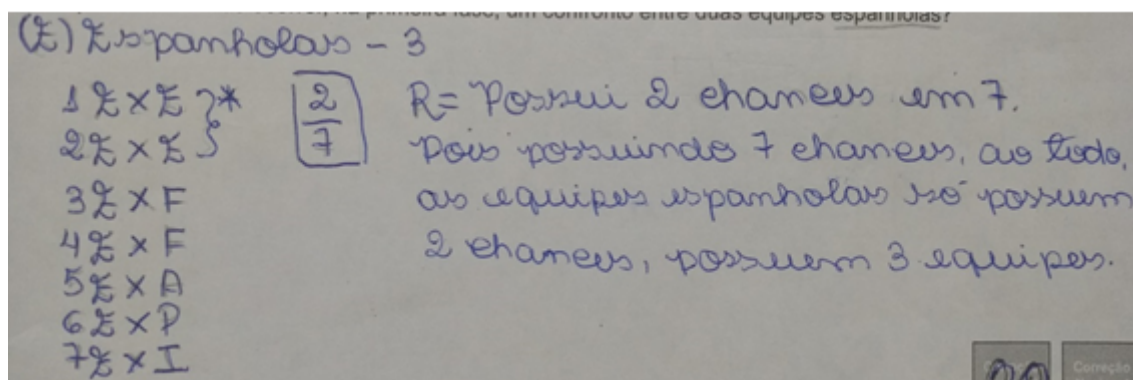 primeira fase, um confronto entre duas equipes espanholas?
(E) Espanholas - 3
1 E x E }*
2 E x E
2/7
3 E x F
4 E x F
5 E x A
6 E x P
7 E x I
R = Possui 2 chances em 7.
Pois possuindo 7 chances, ao todo,
as equipes espanholas só possuem
2 chances, possuem 3 equipes.
Correção